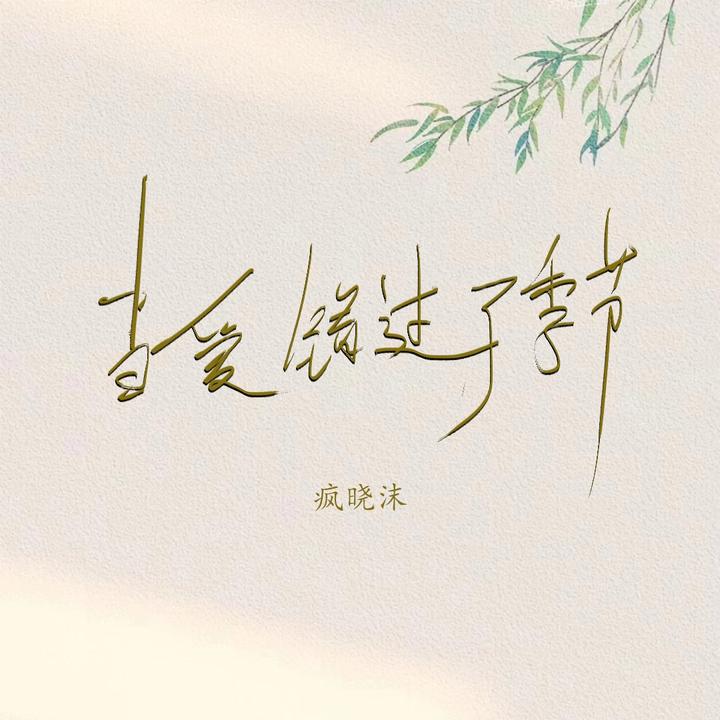 当爱错过了季节
疯晓沫